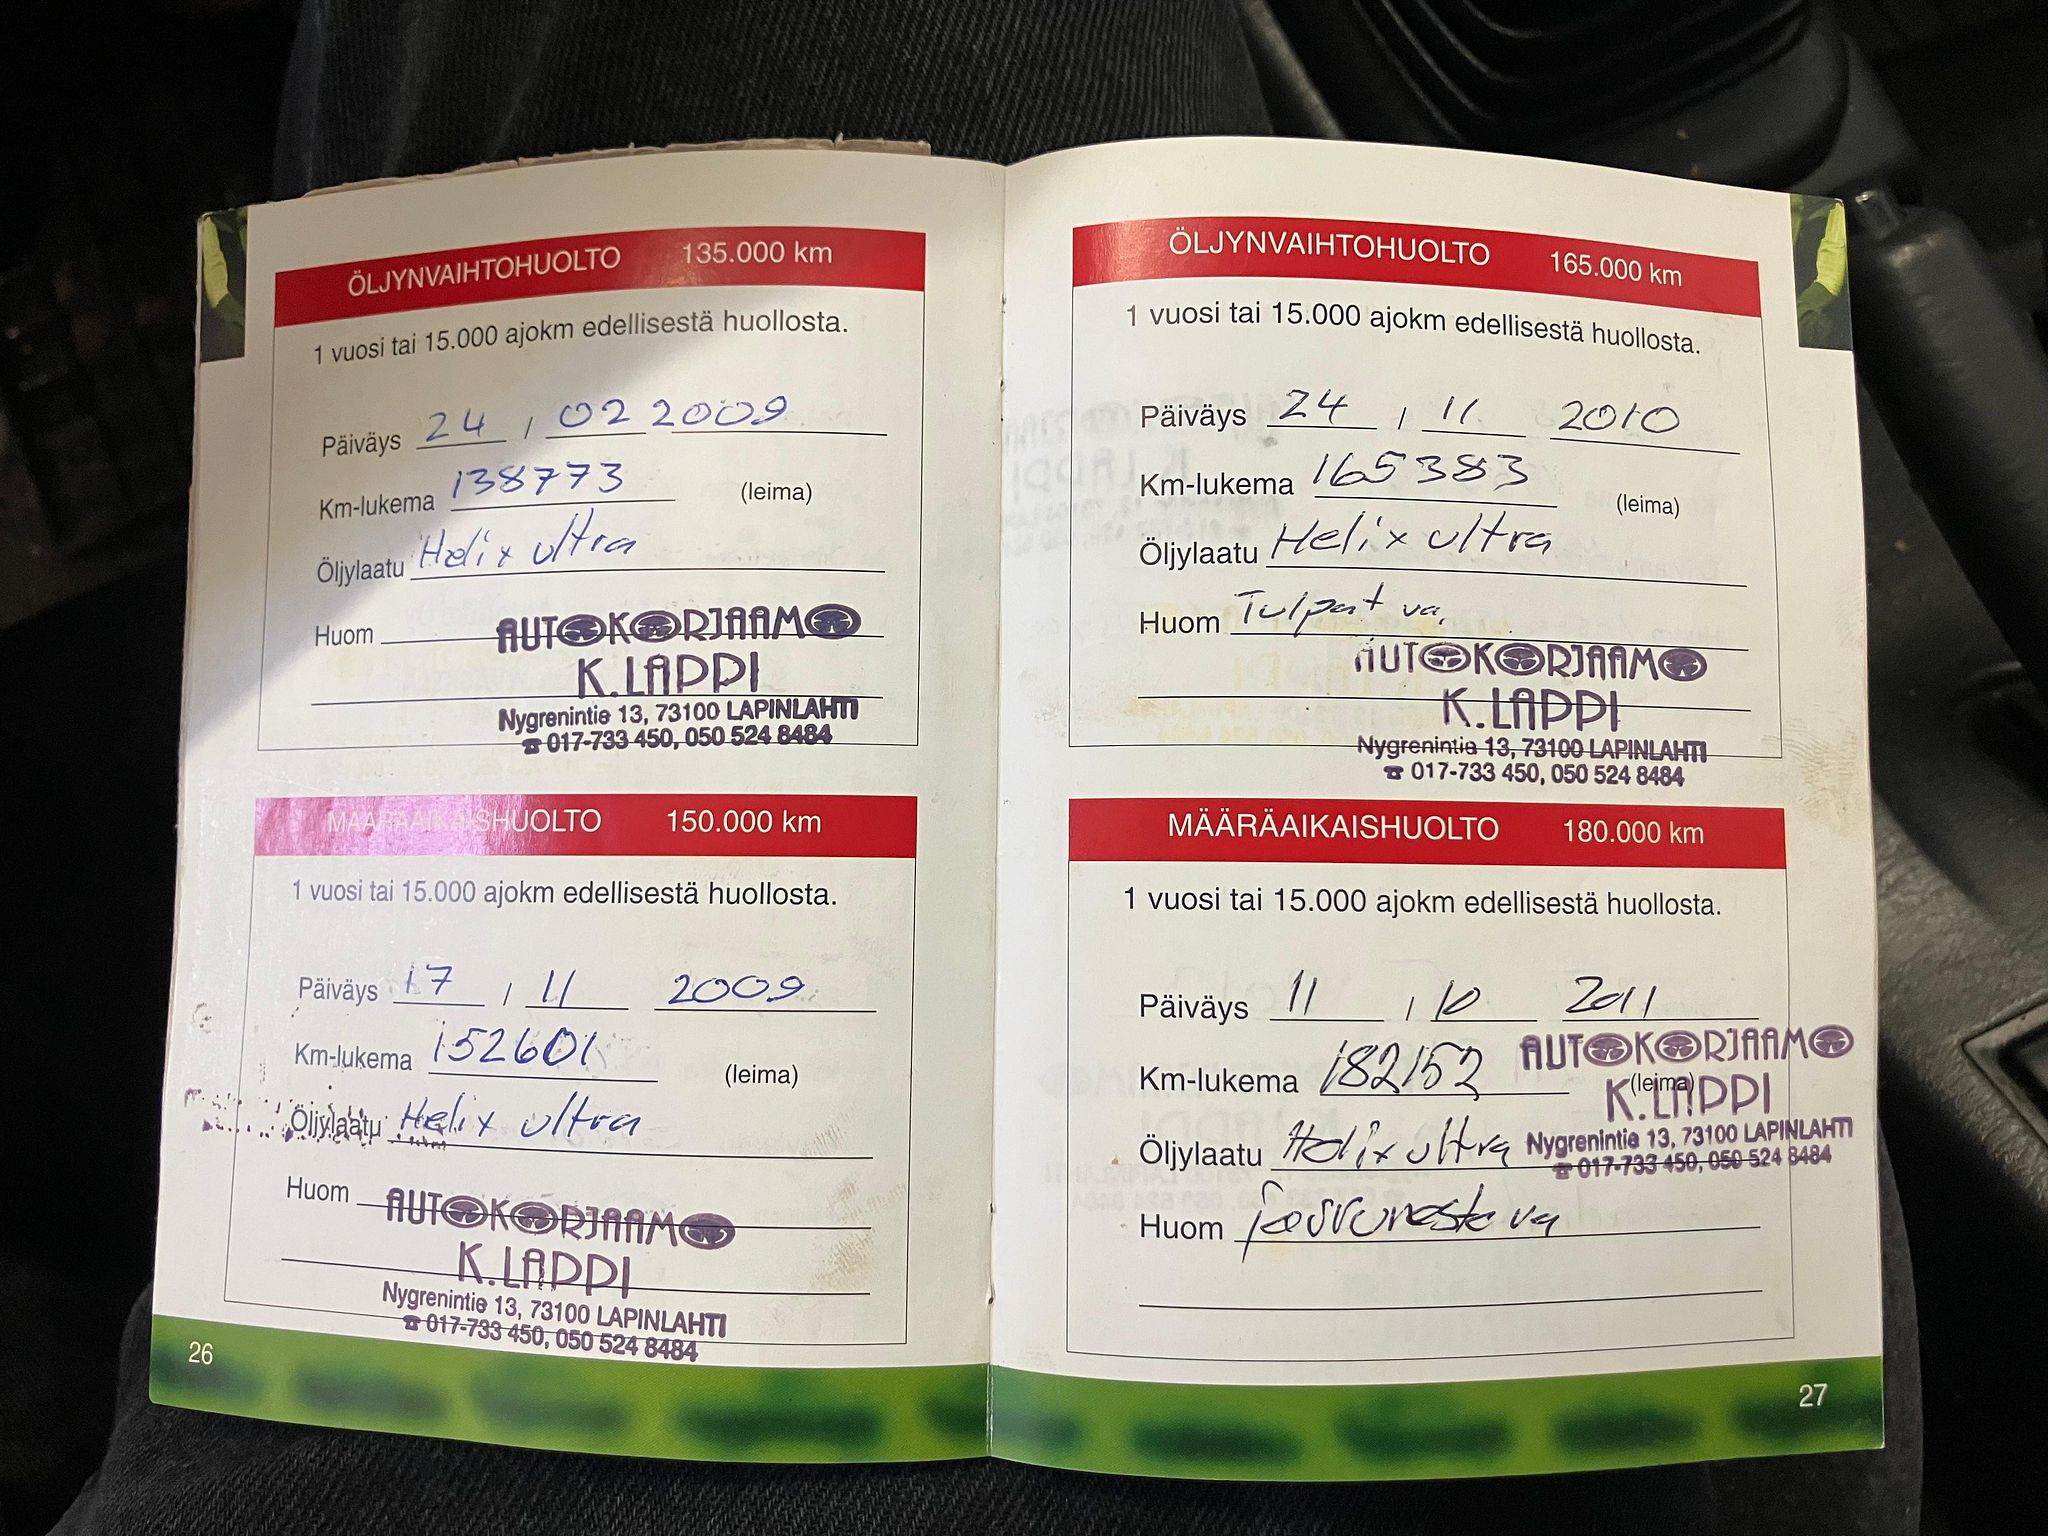 ÖLJYNVAIHTOHUOLTO 135.000 km
1 vuosi tai 15.000 ajokm edellisestä huollosta.
Päiväys 24 / 02 2009
Km-lukema 138773 (leima)
Öljylaatu Helix ultra
Huom
AUTOKORJAAMO
K.LAPPI
Nygrenintie 13, 73100 LAPINLAHTI
☎ 017-733 450, 050 524 8484
MÄÄRÄAIKAISHUOLTO 150.000 km
1 vuosi tai 15.000 ajokm edellisestä huollosta.
Päiväys 17 / 11 2009
Km-lukema 152601 (leima)
Öljylaatu Helix ultra
Huom
AUTOKORJAAMO
K.LAPPI
Nygrenintie 13, 73100 LAPINLAHTI
☎ 017-733 450, 050 524 8484
26
ÖLJYNVAIHTOHUOLTO 165.000 km
1 vuosi tai 15.000 ajokm edellisestä huollosta.
Päiväys 24 / 11 2010
Km-lukema 165383 (leima)
Öljylaatu Helix ultra
Huom Tulpat va.
AUTOKORJAAMO
K.LAPPI
Nygrenintie 13, 73100 LAPINLAHTI
☎ 017-733 450, 050 524 8484
MÄÄRÄAIKAISHUOLTO 180.000 km
1 vuosi tai 15.000 ajokm edellisestä huollosta.
Päiväys 11 / 10 2011
Km-lukema 182152 (leima)
Öljylaatu Helix ultra
Huom jarruneste va
AUTOKORJAAMO
K.LAPPI
Nygrenintie 13, 73100 LAPINLAHTI
☎ 017-733 450, 050 524 8484
27